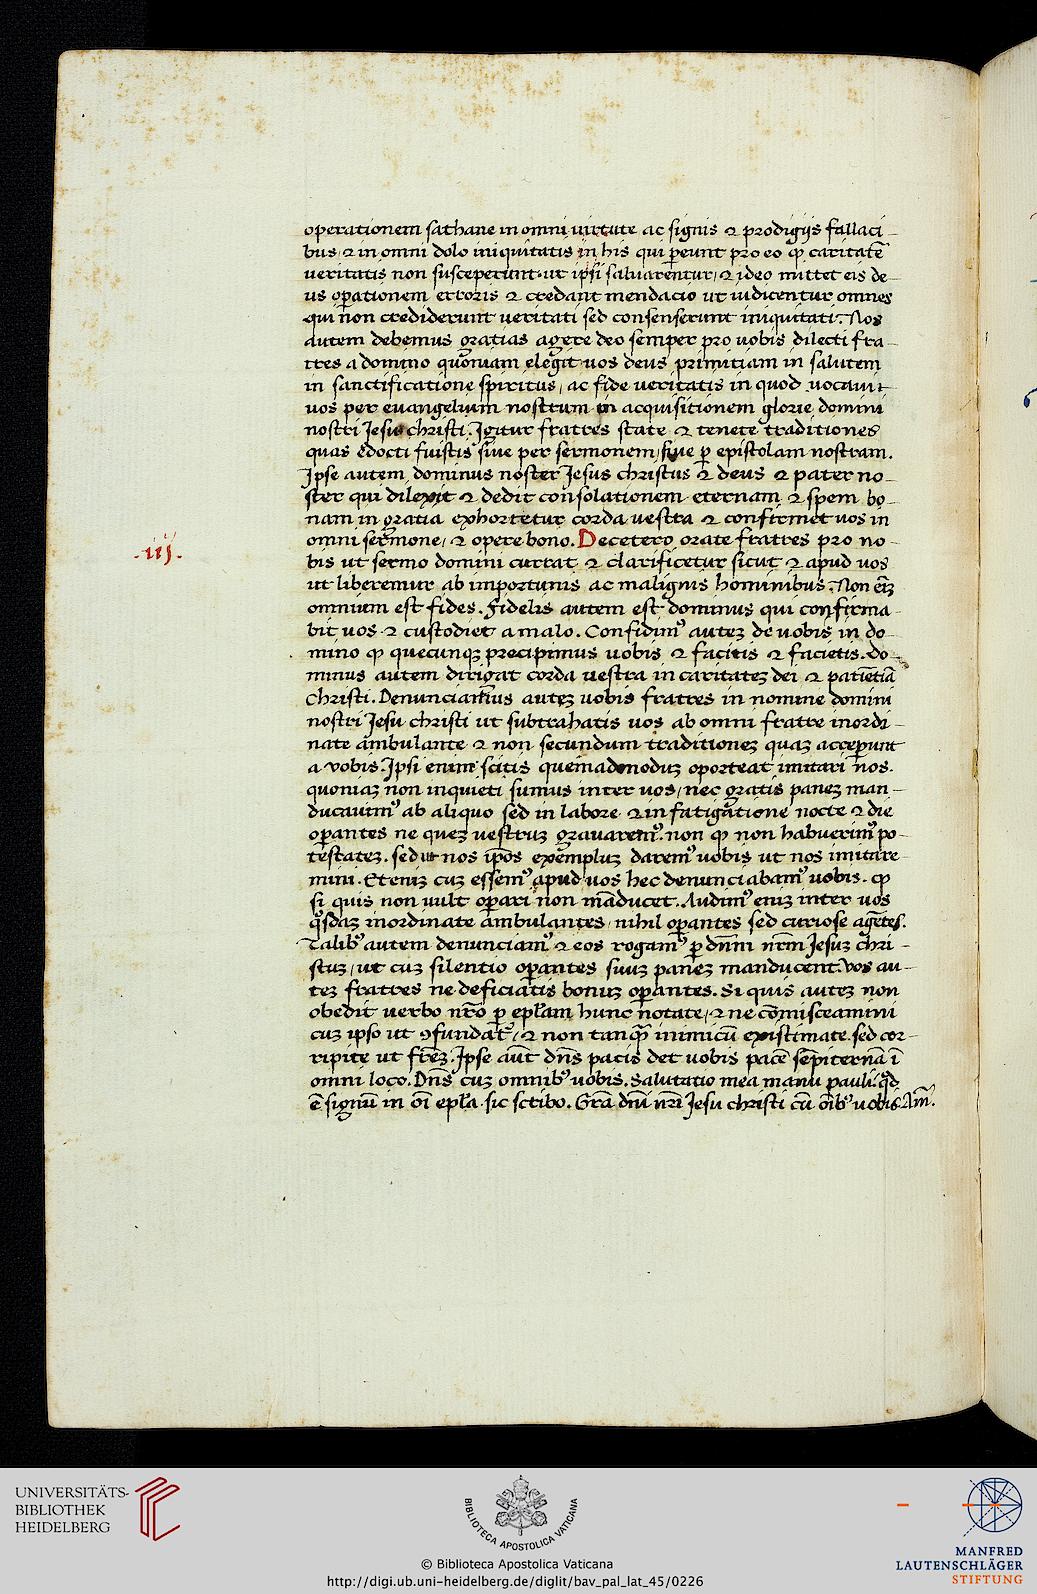 operationem sathane in omni uirtute ac signis ⁊ prodigijs fallaci-
bus, ⁊ in omni dolo iniquitatis in his qui ꝑeunt pro eo ꝙ caritatē
ueritatis non susceperunt. ut ipsi saluarentur, ⁊ ideo mittet eis de-
us oꝑationem erroris ⁊ credant mendacio ut iudicentur omnes
qui non crediderunt ueritati sed consenserunt iniquitati. Nos
autem debemus gratias agere deo semper pro uobis dilecti fra-
tres a domino quoniam elegit uos deus primitiam in salutem
in sanctificatione spiritus, ac fide ueritatis in quod uocauit
uos per euangelium nostrum in acquisitionem glorie domini
nostri Jesu christi. Igitur fratres state ⁊ tenete traditiones
quas edocti fuistis siue per sermonem, siue ꝑ epistolam nostram.
Ipse autem dominus noster Jesus christus ⁊ deus ⁊ pater no-
ster qui dilexit ⁊ dedit consolationem eternam ⁊ spem bo-
nam in gratia exhortetur corda uestra ⁊ confirmet uos in
omni sermone, ⁊ opere bono. Decetero orate fratres pro no-
.iij.
bis ut sermo domini currat ⁊ clarificetur sicut ⁊ apud uos
ut liberemur ab importunis ac malignis hominibus. Non eīz
omnium est fides. Fidelis autem est dominus qui confirma-
bit uos ⁊ custodiet a malo. Confidimꝰ autez de uobis in do-
mino ꝙ quecunqz precipimus uobis ⁊ facitis ⁊ facietis. Do-
minus autem dirigat corda uestra in caritatez dei ⁊ patiētia
Christi. Denunciamus autez uobis fratres in nomine domini
nostri Jesu christi ut subtrahatis uos ab omni fratre inordi-
nate ambulante ⁊ non secundum traditionez quaz acceꝑunt
a vobis. Ipsi enim scitis quemadmoduz oporteat imitari nos.
quoniaz non inquieti fumus inter uos, nec gratis panez man-
ducauimꝰ ab aliquo sed in labore ⁊ in fatigatione nocte ⁊ die
oꝑantes ne quez uestruz grauaremꝰ. non ꝙ non habuerimꝰ po-
testatez. sed ut nos ip̄os exempluz daremꝰ uobis ut nos imitare-
mini. Etenīz cuz essemꝰ apud uos hec denunciabamꝰ uobis. ꝙ
si quis non uult oꝑari non māducet. Audimꝰ eniz inter uos
q̊sdaz inordinate ambulantes, nihil oꝑantes sed curiose agētes.
Talibꝰ autem denunciamꝰ ⁊ eos rogamꝰ ꝑ dn̄m nr̄m Jesuz chri-
stuz, ut cuz silentio oꝑantes suuz panez manducent. vos au-
tez fratres ne deficiatis bonuz oꝑantes. Si quis autez non
obedit uerbo nr̄o ꝑ epl̄am hunc notate, ⁊ ne cōmisceamini
cuz ipso ut ꝯfundat᷑, ⁊ non tanqꝫ̄ inimicū existimate. sed cor-
ripite ut fr̄ez. Ipse aūt dn̄s pacis det uobis pacē sēpiternā ī
omni loco. Dn̄s cuz omnibꝰ uobis. Salutatio mea manu pauli. qd̄
ē signū in oī epl̄a. sic scribo. Gr̄a dn̄i nr̄i Jesu christi cū oībꝰ uobis. Am̄.
UNIVERSITÄTS-
BIBLIOTHEK
HEIDELBERG
BIBLIOTECA APOSTOLICA VATICANA
© Biblioteca Apostolica Vaticana
http://digi.ub.uni-heidelberg.de/diglit/bav_pal_lat_45/0226
MANFRED
LAUTENSCHLÄGER
STIFTUNG